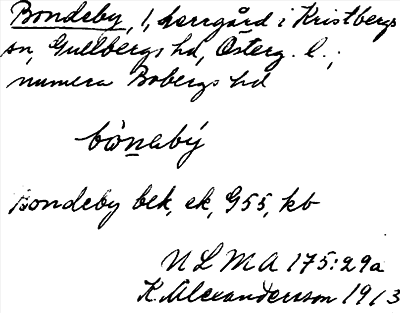 Bondeby, 1, herrgård i Kristbergs
sn, Gullbergs hd, Österg. l.;
numera Bobergs hd
bònabý
Bondeby bek, ek, G55, kb
NLMA 175:29a
K. Alexandersson 1913